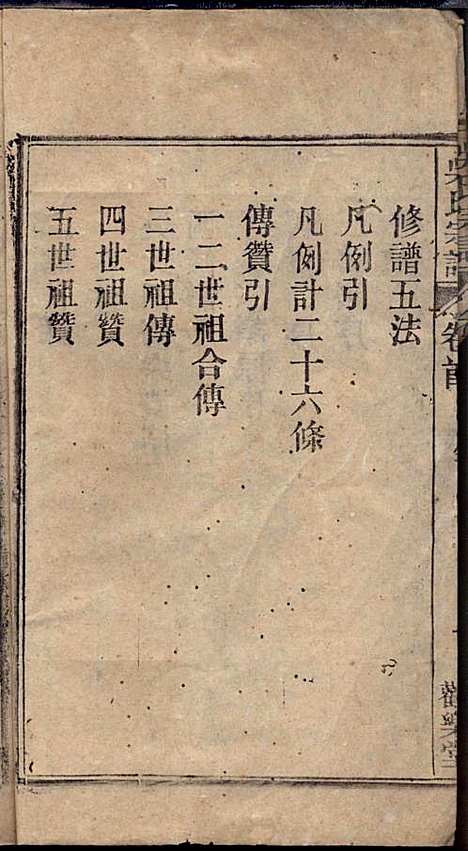 修譜五法
凡例引
凡例計二十六條
傳贊引
一二世祖合傳
三世祖傳
四世祖贊
五世祖贊
氏宗譜
卷首